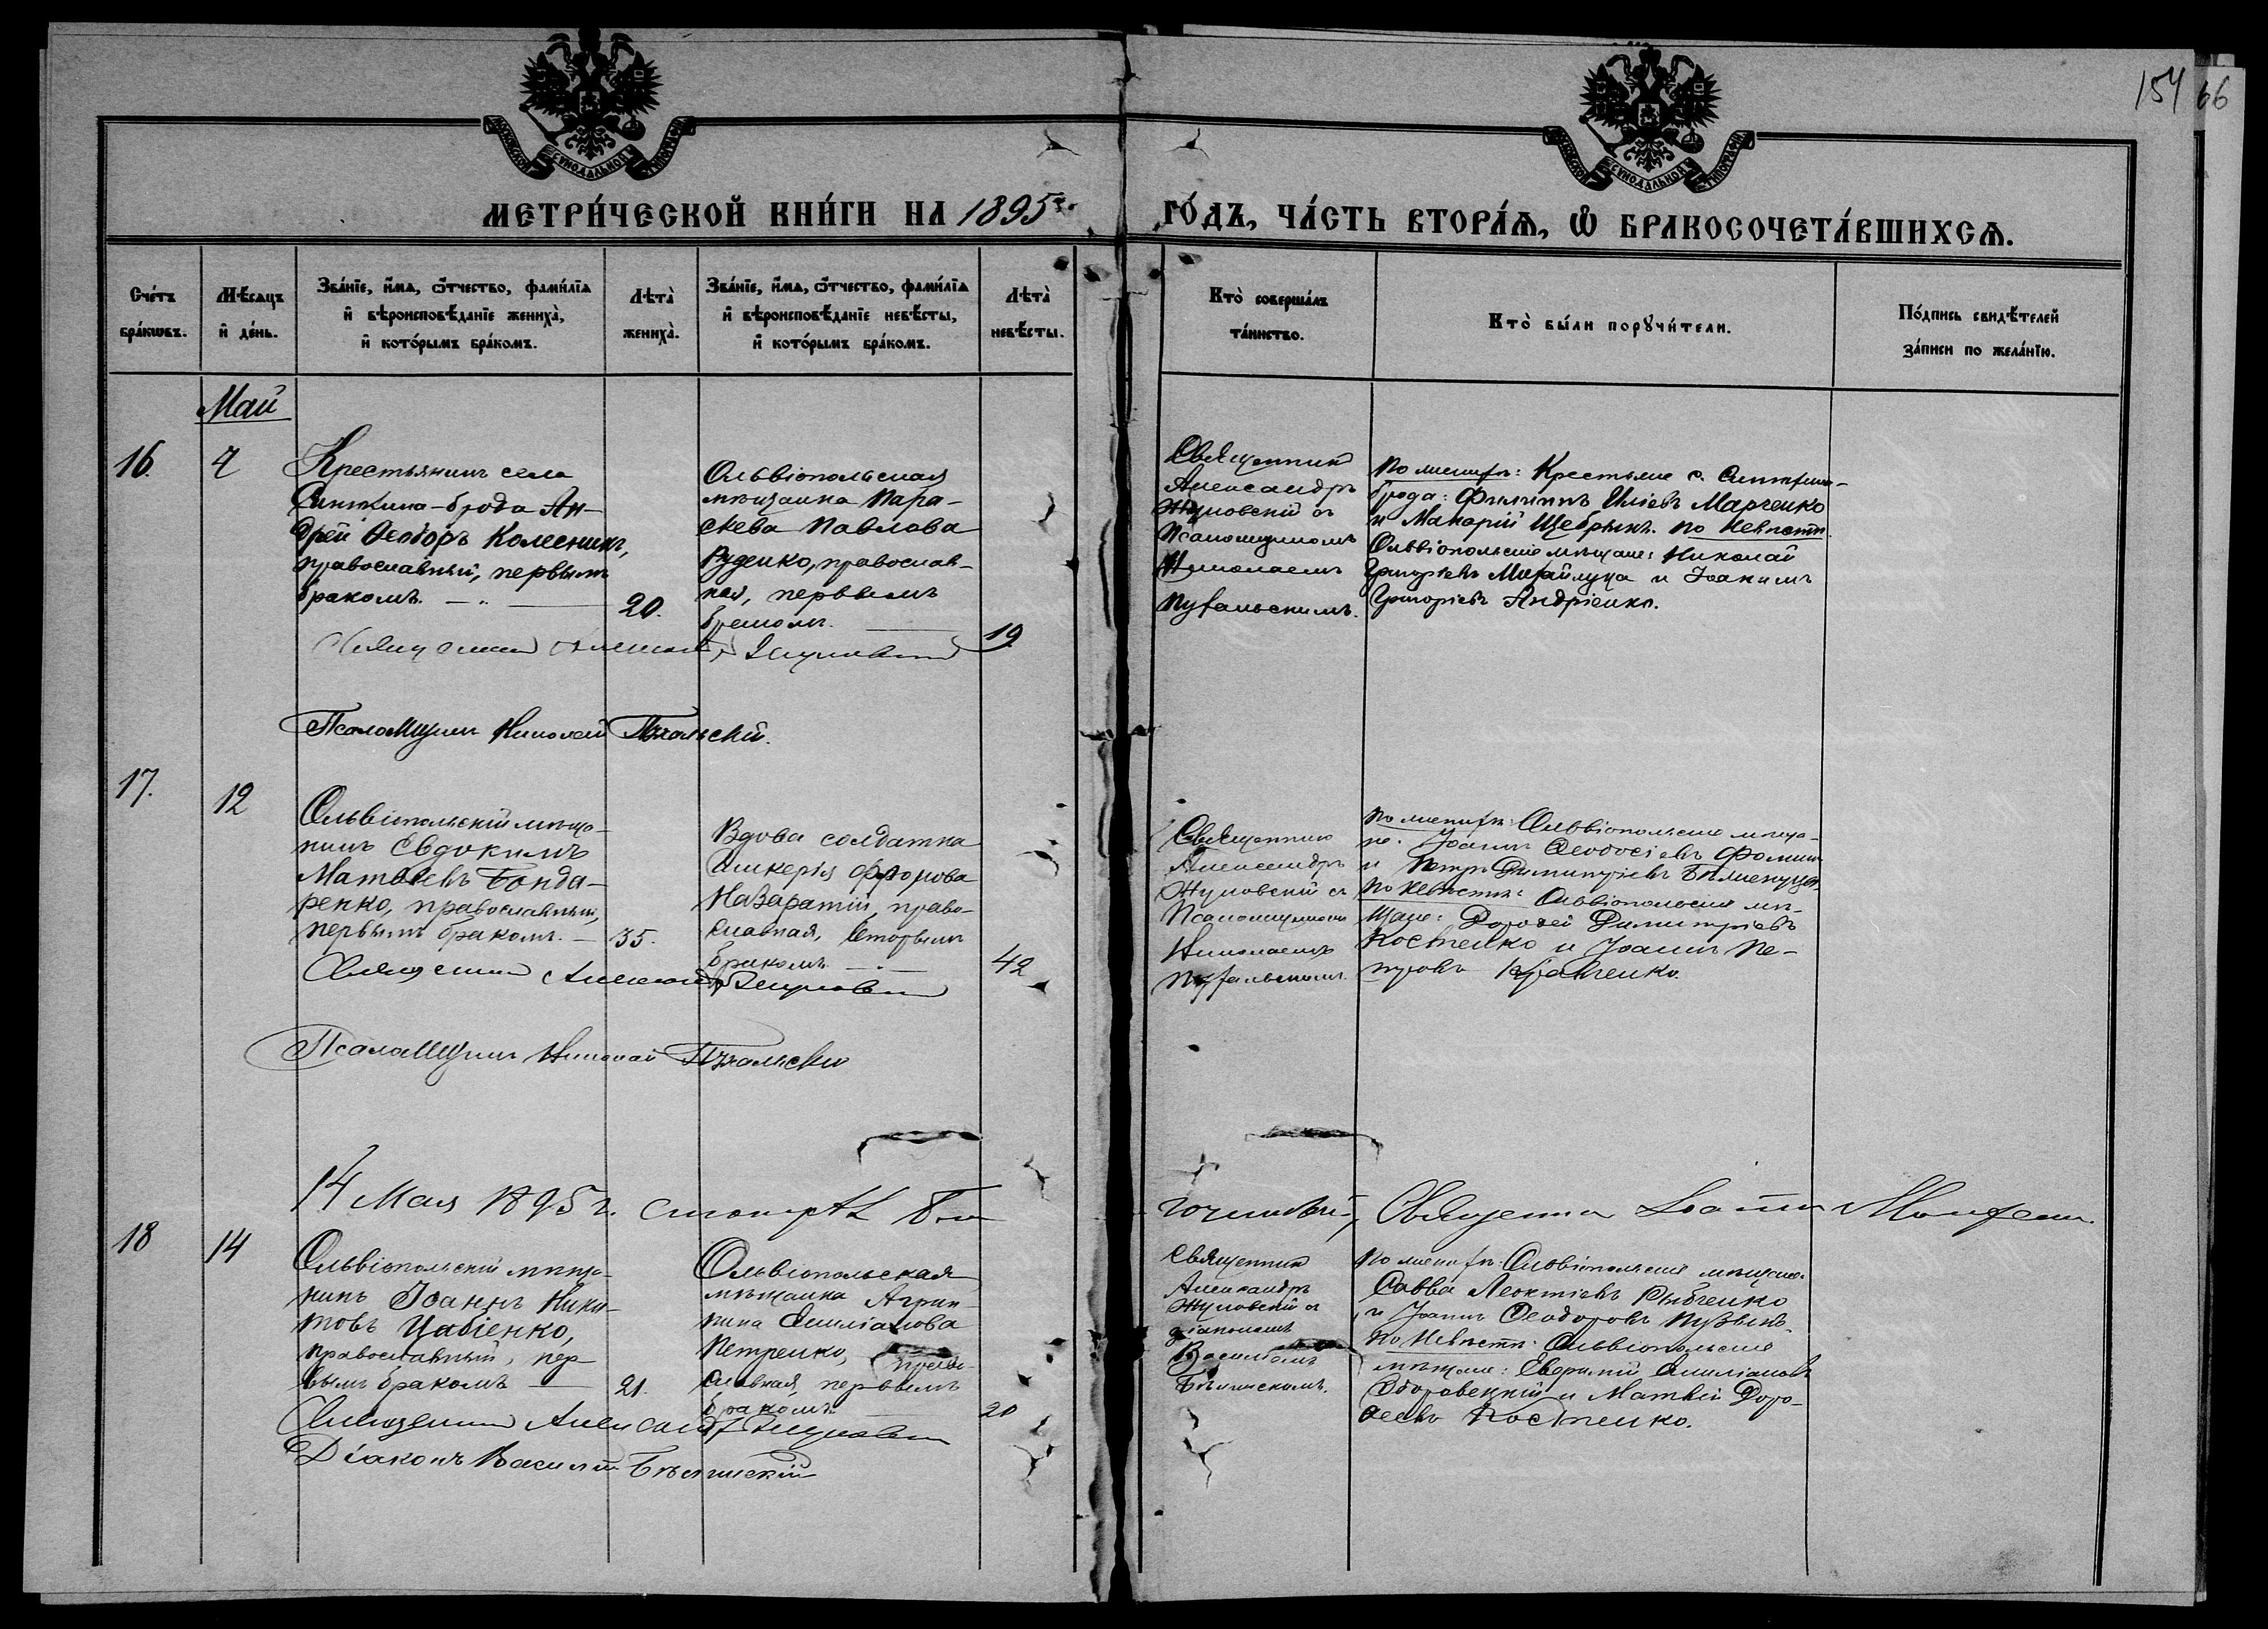 154 66
МОСКОВСКОЙ СѴНОДАЛЬНОЙ ТИПОГРАФІИ
МОСКОВСКОЙ СѴНОДАЛЬНОЙ ТИПОГРАФІИ
МЕТРИ́ЧЕСКОЙ КНИ́ГИ НА 1895 г. ГО́ДЪ, ЧА́СТЬ ВТОРА́Ѧ, Ѽ БРАКОСОЧЕТА́ВШИХСѦ.
Сче́тъ
бра́кѡвъ.
Мѣ́сѧцъ
и҆ де́нь.
Зва́нїе, и҆́мѧ, ѻ҆́тчество, фамѝлїѧ
и҆ вѣроисповѣ́данїе жениха̀,
и҆ кото́рымъ бра́комъ.
Лѣта̀
жениха̀.
Зва́нїе, и҆́мѧ, ѻ҆́тчество, фамѝлїѧ
и҆ вѣроисповѣ́данїе невѣ́сты,
и҆ кото́рымъ бра́комъ.
Лѣта̀
невѣ́сты.
Кто̀ соверша́лъ
та́инство.
Кто̀ бы́ли порꙋчи́тели.
По́дпись свидѣ́телей
за́писи по жела́нїю.
Май
16.
Крестьянинъ села
Синюхина-брода Ан-
дрей Ѳеодоръ Колесникъ,
православный, первымъ
бракомъ.
20.
Ольвіопольская
мѣщанка Пара-
скева Павлова
Руденко, православ-
ная, первымъ
бракомъ.
19
Священникъ
Александръ
Жуловскій съ
Псаломщикомъ
Николаемъ
По женихѣ: Крестьяне с. Синюхина-
брода: Филиппъ Иліевъ Марченко
и Макарій Щебрынъ. По невѣстѣ:
Ольвіопольскіе мѣщане: Николай
Григорьевъ и Іоакимъ
Григоріевъ Андріенко.
Священникъ Александръ Жуловскій
Псаломщикъ Николай
17.
12
Ольвіопольскій мѣща-
нинъ Евдокимъ
Матѳіевъ Бонда-
ренко, православный,
первымъ бракомъ.
35.
Вдова солдатка
Гликерія
Назаратій, право-
славная, вторымъ
бракомъ.
42
Священникъ
Александръ
Жуловскій съ
Псаломщикомъ
Николаемъ
По женихѣ: Ольвіопольскіе мѣща-
не: Іоаннъ Ѳеодосіевъ Фоминъ
и Петръ Димитріевъ
По невѣстѣ: Ольвіопольскіе мѣ-
щане: Дорофей Димитріевъ
Костенко и Іоаннъ Пе-
тровъ Кравченко.
Священникъ Александръ Жуловскій
Псаломщикъ Николай
14 Мая 1895 г. смотрѣлъ Благочинный, Священникъ Іоаннъ
18
14
Ольвіопольскій мѣща-
нинъ Іоаннъ Ники-
товъ Цабіенко,
православный, пер-
вымъ бракомъ
21.
Ольвіопольская
мѣщанка Агрип-
пина Емиліанова
Петренко, право-
славная, первымъ
бракомъ.
20
Священникъ
Александръ
Жуловскій съ
діакономъ
Василіемъ
По женихѣ: Ольвіопольскіе мѣщане:
Савва Леонтіевъ Рыбченко
и Іоаннъ Ѳеодоровъ
По невѣстѣ: Ольвіопольскіе
мѣщане: Евфимій Емиліановъ
и Матѳій Доро-
ѳеевъ Костенко.
Священникъ Александръ Жуловскій
Діаконъ Василій